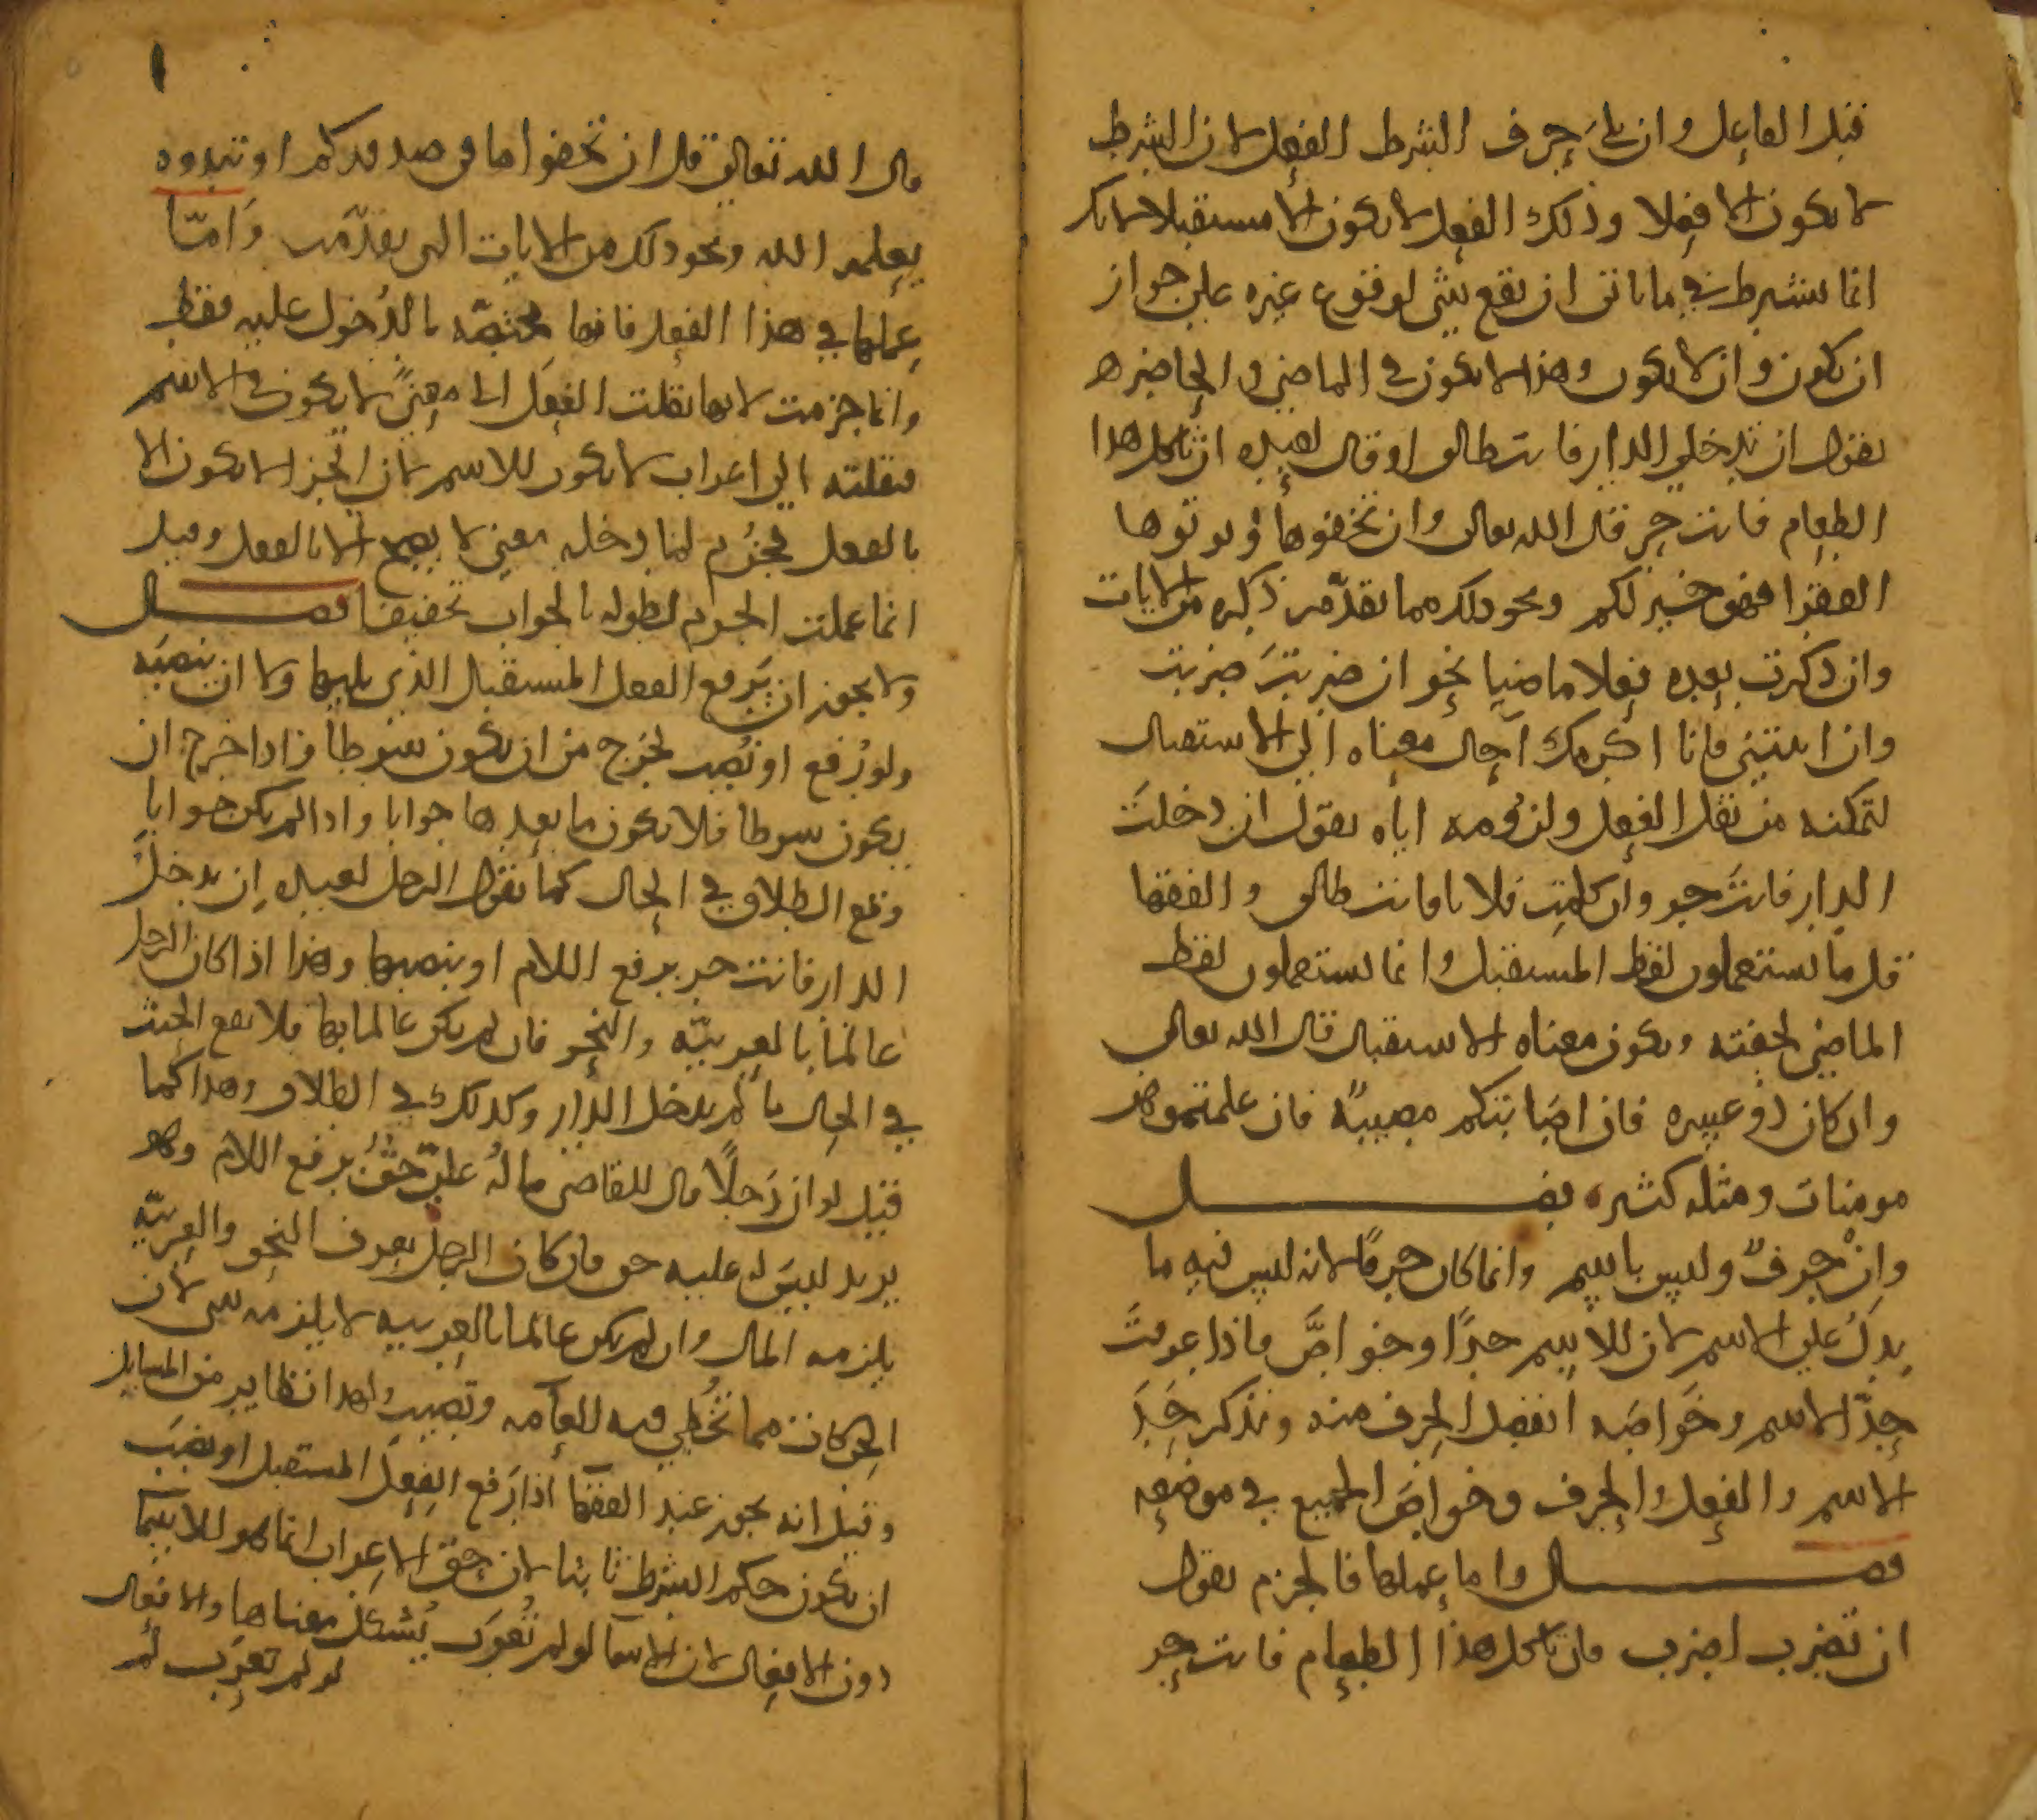 قبل الفاعل وان يلي حرف الشرط الفعل لان الشرط
لا يكون الا فعلا وذلك الفعل لا يكون الا مستقبلا لانك
انما تشترط في ما ياتي ان يقع شي لوقوع غيره على جواز
ان يكون وان لا يكون وهذا لا يكون في الماضي والحاضر
تقول ان تدخلي الدار فانت طالق او قال لعبده ان تاكل هذا
الطعام فانت حر قال الله تعالى وان تخفوها وتوتوها
الفقرا فهو خير لكم ونحو ذلك مما تقدم ذكره من الايات
وان ذكرت بعده فعلا ماضيا نحو ان ضربتَ ضربت
وان اتيتني فانا اكرمك احال معناه الى الاستقبال
لتمكنه من نقل الفعل ولزومه اياه تقول ان دخلتَ
الدار فانت حر وان كلمتِ فلانا فانت طالق والفقها
قل ما يستعملون لفظ المستقبل وانما يستعملون لفظ
الماضي لخفته ويكون معناه الاستقبال قال الله تعالى
وان كان ذو عسره فان اصابتكم مصيبة فان علمتموهن
مومنات ومثله كثير فصل
وانْ حرفٌ وليس باسم وانما كان حرفًا لانه ليس فيه ما
يدلُ على الاسم لان للاسم حدًا وخواصَّ فاذا عرفتَ
حدّ الاسم وخواصَه انفصل الحرف منه ونذكر حَدَ
الاسم والفعل والحرف وخواصَ الجميع في موضعه
فصل واما عملها فالجزم تقول
ان تضرب اضرب فان تاكل هذا الطعام فانت حر
قال الله تعالى قل ان تخفوا ما في صدوركم او تبدوه
يعلمه الله ونحو ذلك من الايات التي تقدّمت وَامّا
عملها في هذا الفعل فانها مختصّه بالدُخول عليه فقط
وانما جزمت لانها نقلت الفعل الى معنىً لا يكون في الاسم
فنقلته الى اعراب لا يكون للاسم لان الجزا لا يكون الا
بالفعل فجُزم لما دخله معنى لا يصح الا بالفعل وقيل
انما عملت الجزم لطوله بالجواب تخفيفا فصل
ولا يجوز ان يَرفع الفعل المستقبل الذي يليها ولا ان ينصبَه
ولو رُفع او نُصب لخرج من ان يكون شرطا فاذا خرج ان
يكون شرطا فلا يكون ما بعدها جوابا واذا لم يكن جوابا
وقع الطلاق في الحال كما تقول الرجل لعبده اِن تدخلُ
الدار فانت حر برفع اللام او بنصبها وهذا اذا كان الرجل
عالمًا بالعربيّه والنحو فان لم يكن عالما بها فلا يقع الحنث
في الحال ما لم يدخل الدار وكذلك في الطلاق وهذا كما
قيل لو ان رَجلًا قال للقاضي ما لهُ عليّ حقٌ برفع اللام وهو
يريد ليس له عليه حق فان كان الرجل يعرف النحو والعربيّه
يلزمه المال وان لم يكن عالما بالعربيه لا يلزمه شي لان
الحركات مما تُخطي فيه العآمه وتصيب ولهذا نظاير من المسايل
وقيل انه يجوز عند الفقها اذا رَفع الفِعلَ المستقبل او نصَبَ
ان يكون حكم الشرط ثابتا لان حق الاعراب انما هو للاسما
دون الافعال لان الاسما لو لم تُعرَب يُشكل معناها والافعال
لو لم تعرَب لم